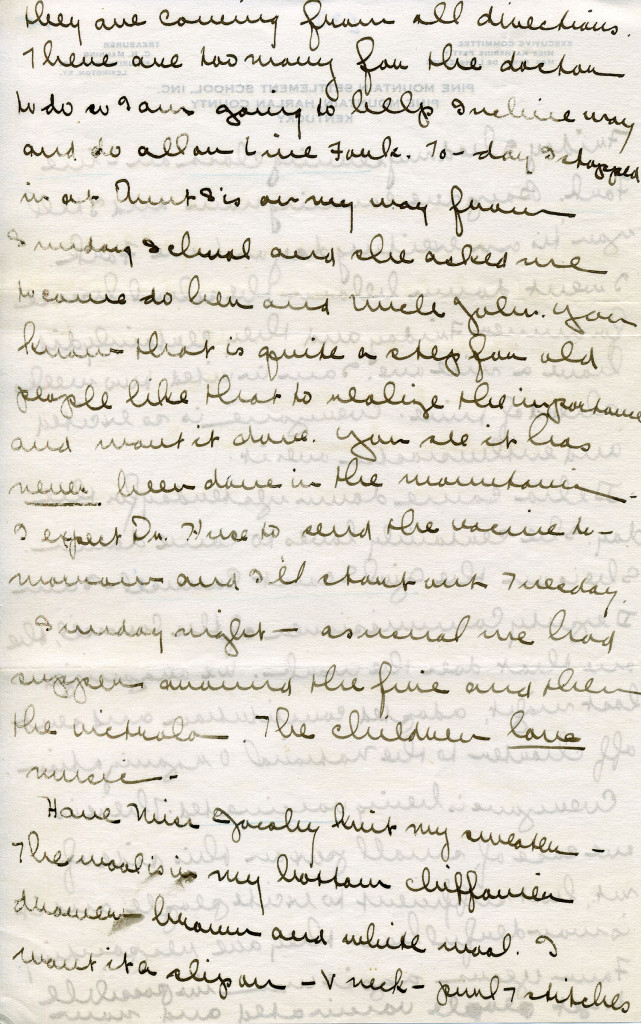 they are coming from all directions.
There are too many for the doctor
to do so I am going to help Incline way
and do all on Line Fork. To-day I stopped
in at Aunt Sis on my way from
Sunday School and she asked me
to come do her and Uncle John. You
know that is quite a step for old
people like that to realize the importance
and want it done. You see it has
never been done in the mountains.
I expect Dr. Huse to send the vacine to-
morrow and I'll start out Tuesday.
Sunday night - as usual we had
supper around the fire and then
the victrola. The children love
music -
Have Miss Jocoby knit my sweater -
The wool is in my bottom chiffonier
drawer - brown and white wool. I
want it a slip on - V neck - purl 7 stitches